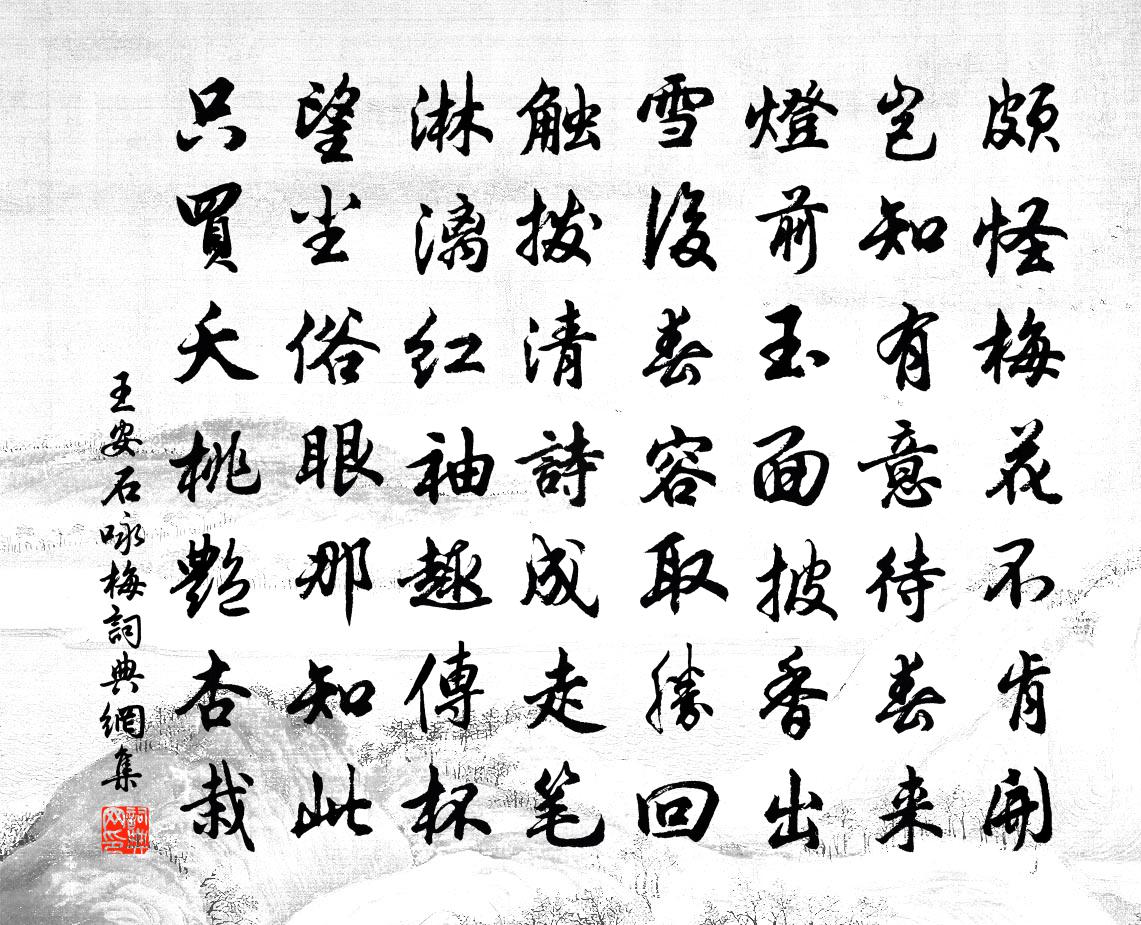 頗怪梅花不肯開
岂知有意待春来
燈前玉面披香出
雪後春容取勝回
触拨清詩成走笔
淋漓红袖趣傳杯
望尘俗眼那知此
只買夭桃艷杏栽
王安石咏梅詞典網集